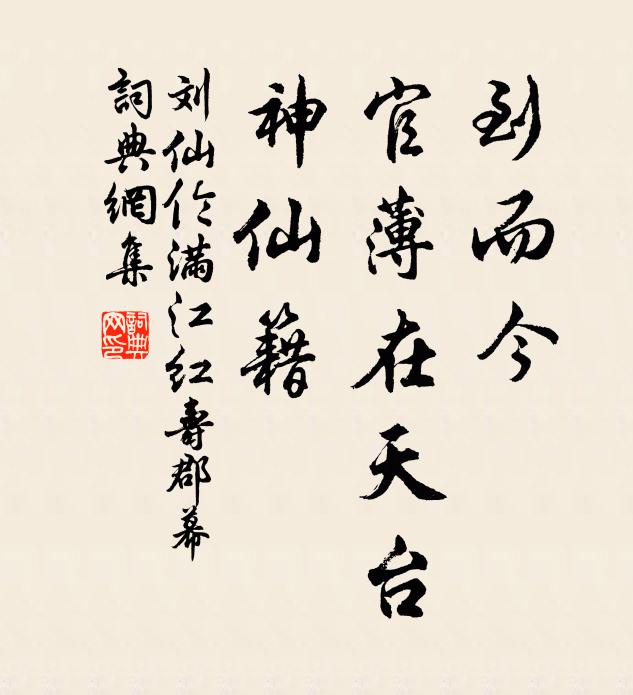 到而今
官薄在天台
神仙籍
刘仙伦满江红寿郡幕
詞典網集
詞典网印